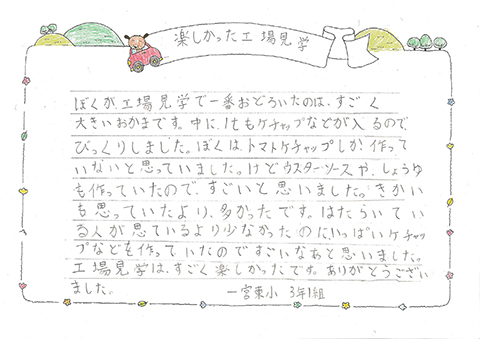 楽しかった工場見学
ぼくが、工場見学で一番おどろいたのは、すごく
大きいおかまです。中に、1tもケチャップなどが入るので、
びっくりしました。ぼくは、トマトケチャップしか作って
いないと思っていました。けどウスターソースや、しょうゆ
も作っていたので、すごいと思いました。きかい
も思っていたより、多かったです。はたらいてい
る人が思ているより少なかったのにいっぱいケチャッ
プなどを作っていたのですごいなあと思いました。
工場見学は、すごく楽しかったです。ありがとうござい
ました。
一宮東小 3年1組